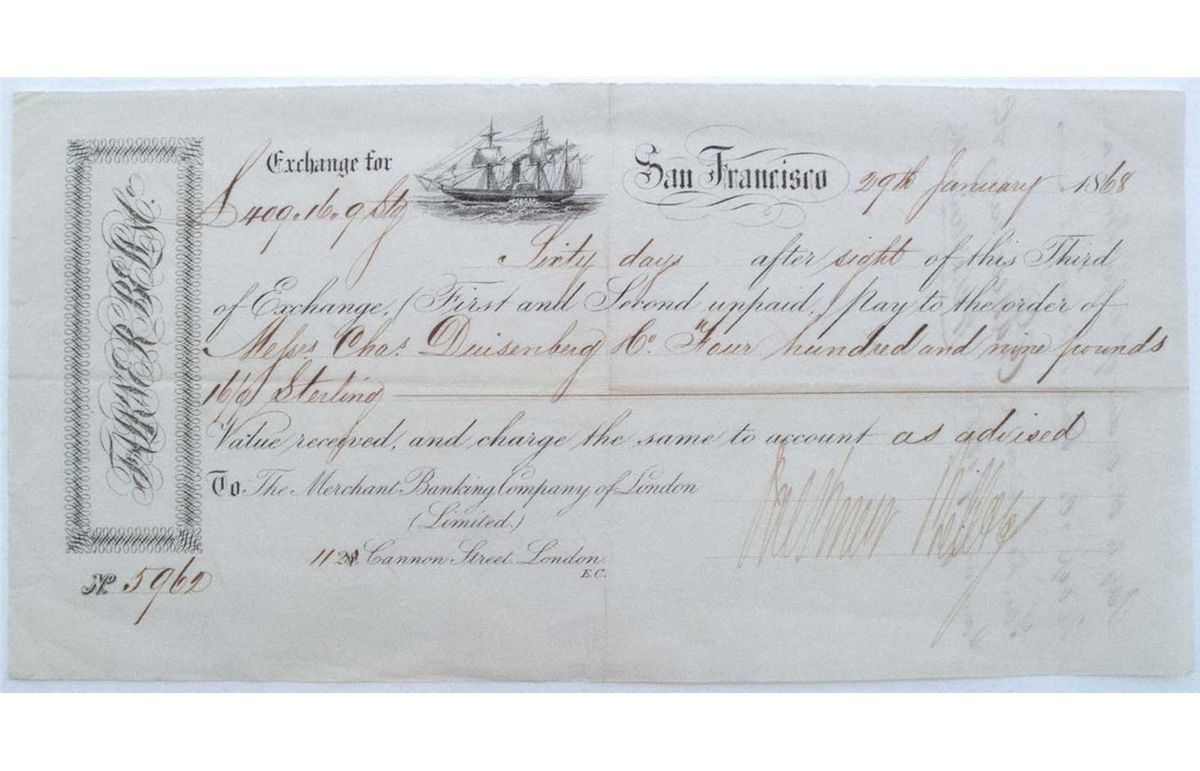 FALKNER BELL & Co.
Exchange for
San Francisco 29th January 1868
£ 409.16.9 Stg
Sixty days after sight of this Third
of Exchange, (First and Second unpaid,) pay to the order of
Messrs Chas. Duisenberg & Co. Four hundred and nine pounds
16/9 Sterling
Value received, and charge the same to account as advised
To The Merchant Banking Company of London
(Limited.)
112 Cannon Street, London.
E.C.
No. 5962